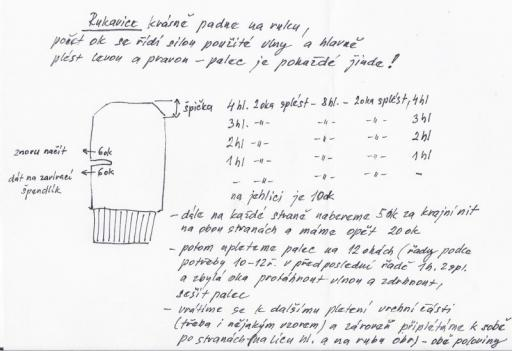 Rukavice krásně padne na ruku,
počet ok se řídí silou použité vlny a hlavně
plést levou a pravou - palec je pokaždé jinde!
špička 4 hl. 2 oka splést - 8 hl. - 2 oka splést, 4 hl
3 hl. -"- -"- -"- 3 hl
2 hl -"- -"- -"- 2 hl
1 hl -"- -"- -"- 1 hl
- -"- -"- -
na jehlici je 10 ok
znovu načít 6 ok
dát na zavírací špendlík 6 ok
- dále na každé straně nabereme 5 ok za krajní nit
na obou stranách a máme opět 20 ok
- potom upleteme palec na 12 okách (řady podle
potřeby 10-12 ř. v předposlední řadě 1 h. 2 spl.
a zbylá oka protáhnout vlnou a zdrhnout,
sešít palec
- vrátíme se k dalšímu pletení vrchní části
(třeba i nějakým vzorem) a zároveň připlétáme k sobě
po stranách (na líci hl. a na rubu obr) - obě poloviny